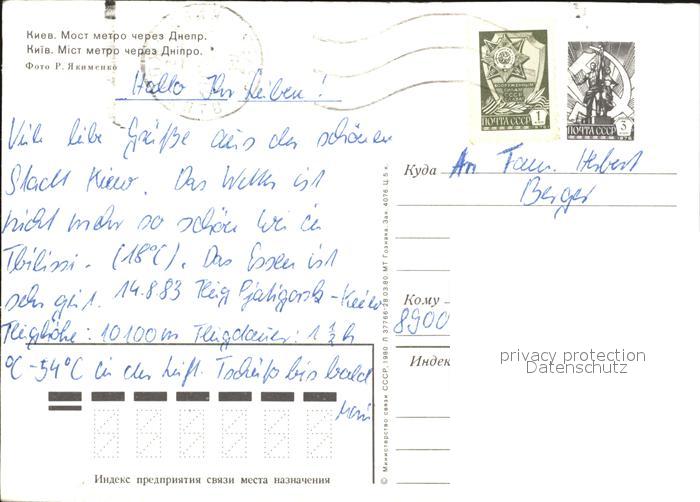 Киев. Мост метро через Днепр.
Київ. Міст метро через Дніпро.
Фото Р. Якименко
Hallo Ihr Lieben!
Viele liebe Grüße aus der schönen
Stadt Kiew. Das Wetter ist
nicht mehr so schön wie in
Tbilissi. (18°C). Das Essen ist
sehr gut. 14.8.83 Flug Pjatigorsk-Kiew
Flughöhe: 10100m Flugdauer: 1 1/2 h
°C -54°C in der Luft. Tschüß bis bald
ПОЧТА СССР
1
ПОЧТА СССР
5
Куда
An Fam. Herbert
Berger
Кому
8900
Индекс
privacy protection
Datenschutz
Индекс предприятия связи места назначения
© Министерство связи СССР, 1980 Л 37766-28.03.80. МТ Гознака. Зак. 4076. Ц. 5 к.